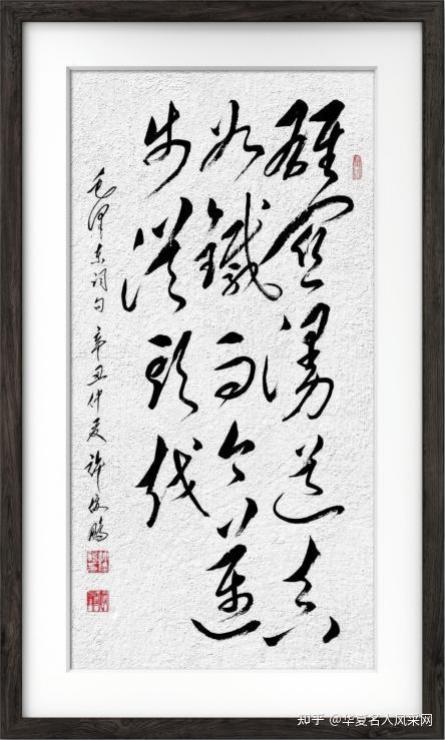 雄關漫道真
如鐵而今邁
步從頭越
毛泽东词句 辛丑仲夏 许俊鹏
知乎 @华夏名人风采网